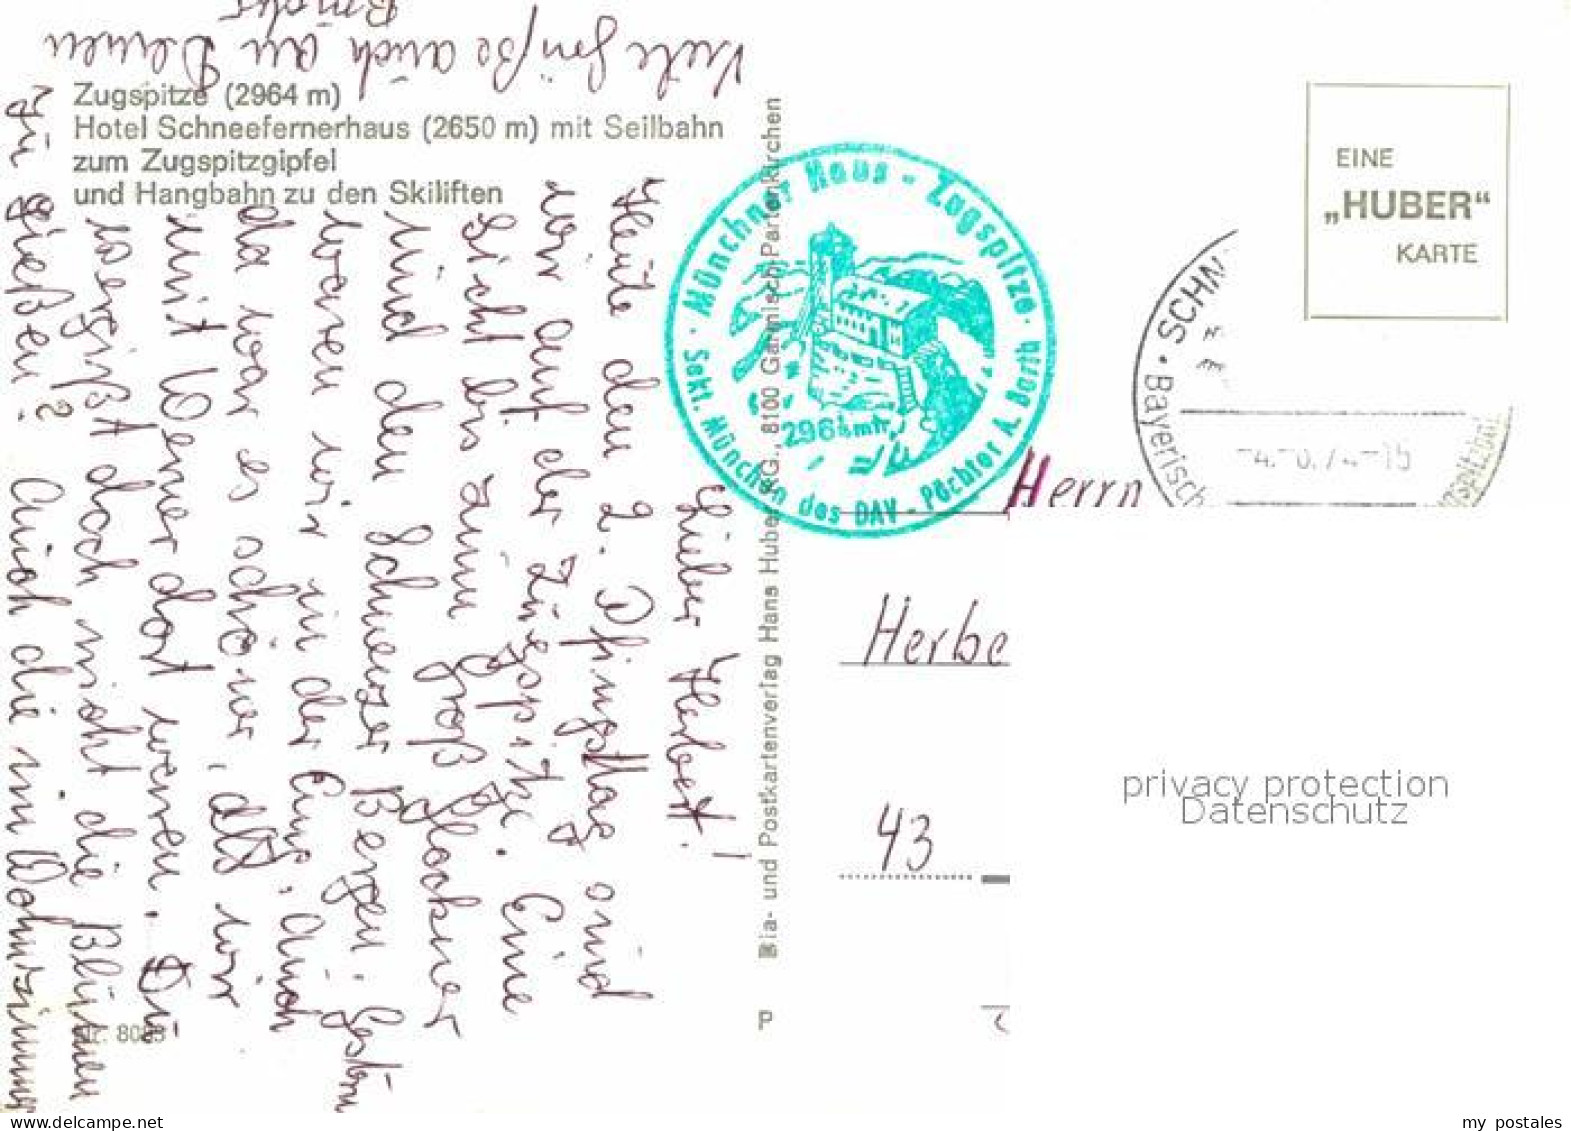 Zugspitze (2964 m)
Hotel Schneefernerhaus (2650 m) mit Seilbahn
zum Zugspitzgipfel
und Hangbahn zu den Skiliften
Lieber Herbert!
Heute den 2. Pfingsttag sind
wir auf der Zugspitze. Eine
Sicht bis zum Groß Glockner
und den Schweizer Bergen. Gestern
waren wir in der Eng. Auch
da war es schöner, als wir
mit Werner dort waren. Du
vergißt doch nicht die Blumen
zu gießen? Auch die im Wohnzimmer
Viele Grüße auch an Deinen
Bruder
Nr. 8083
P
Dia- und Postkartenverlag Hans Huber KG., 8100 Garmisch-Partenkirchen
Münchner Haus - Zugspitze
Sekt. München des DAV - Pächter A. Barth
2964 mtr.
EINE
„HUBER“
KARTE
SCHN
Bayerisch
Herrn
Herbe
43
privacy protection
Datenschutz
www.delcampe.net
my_postales